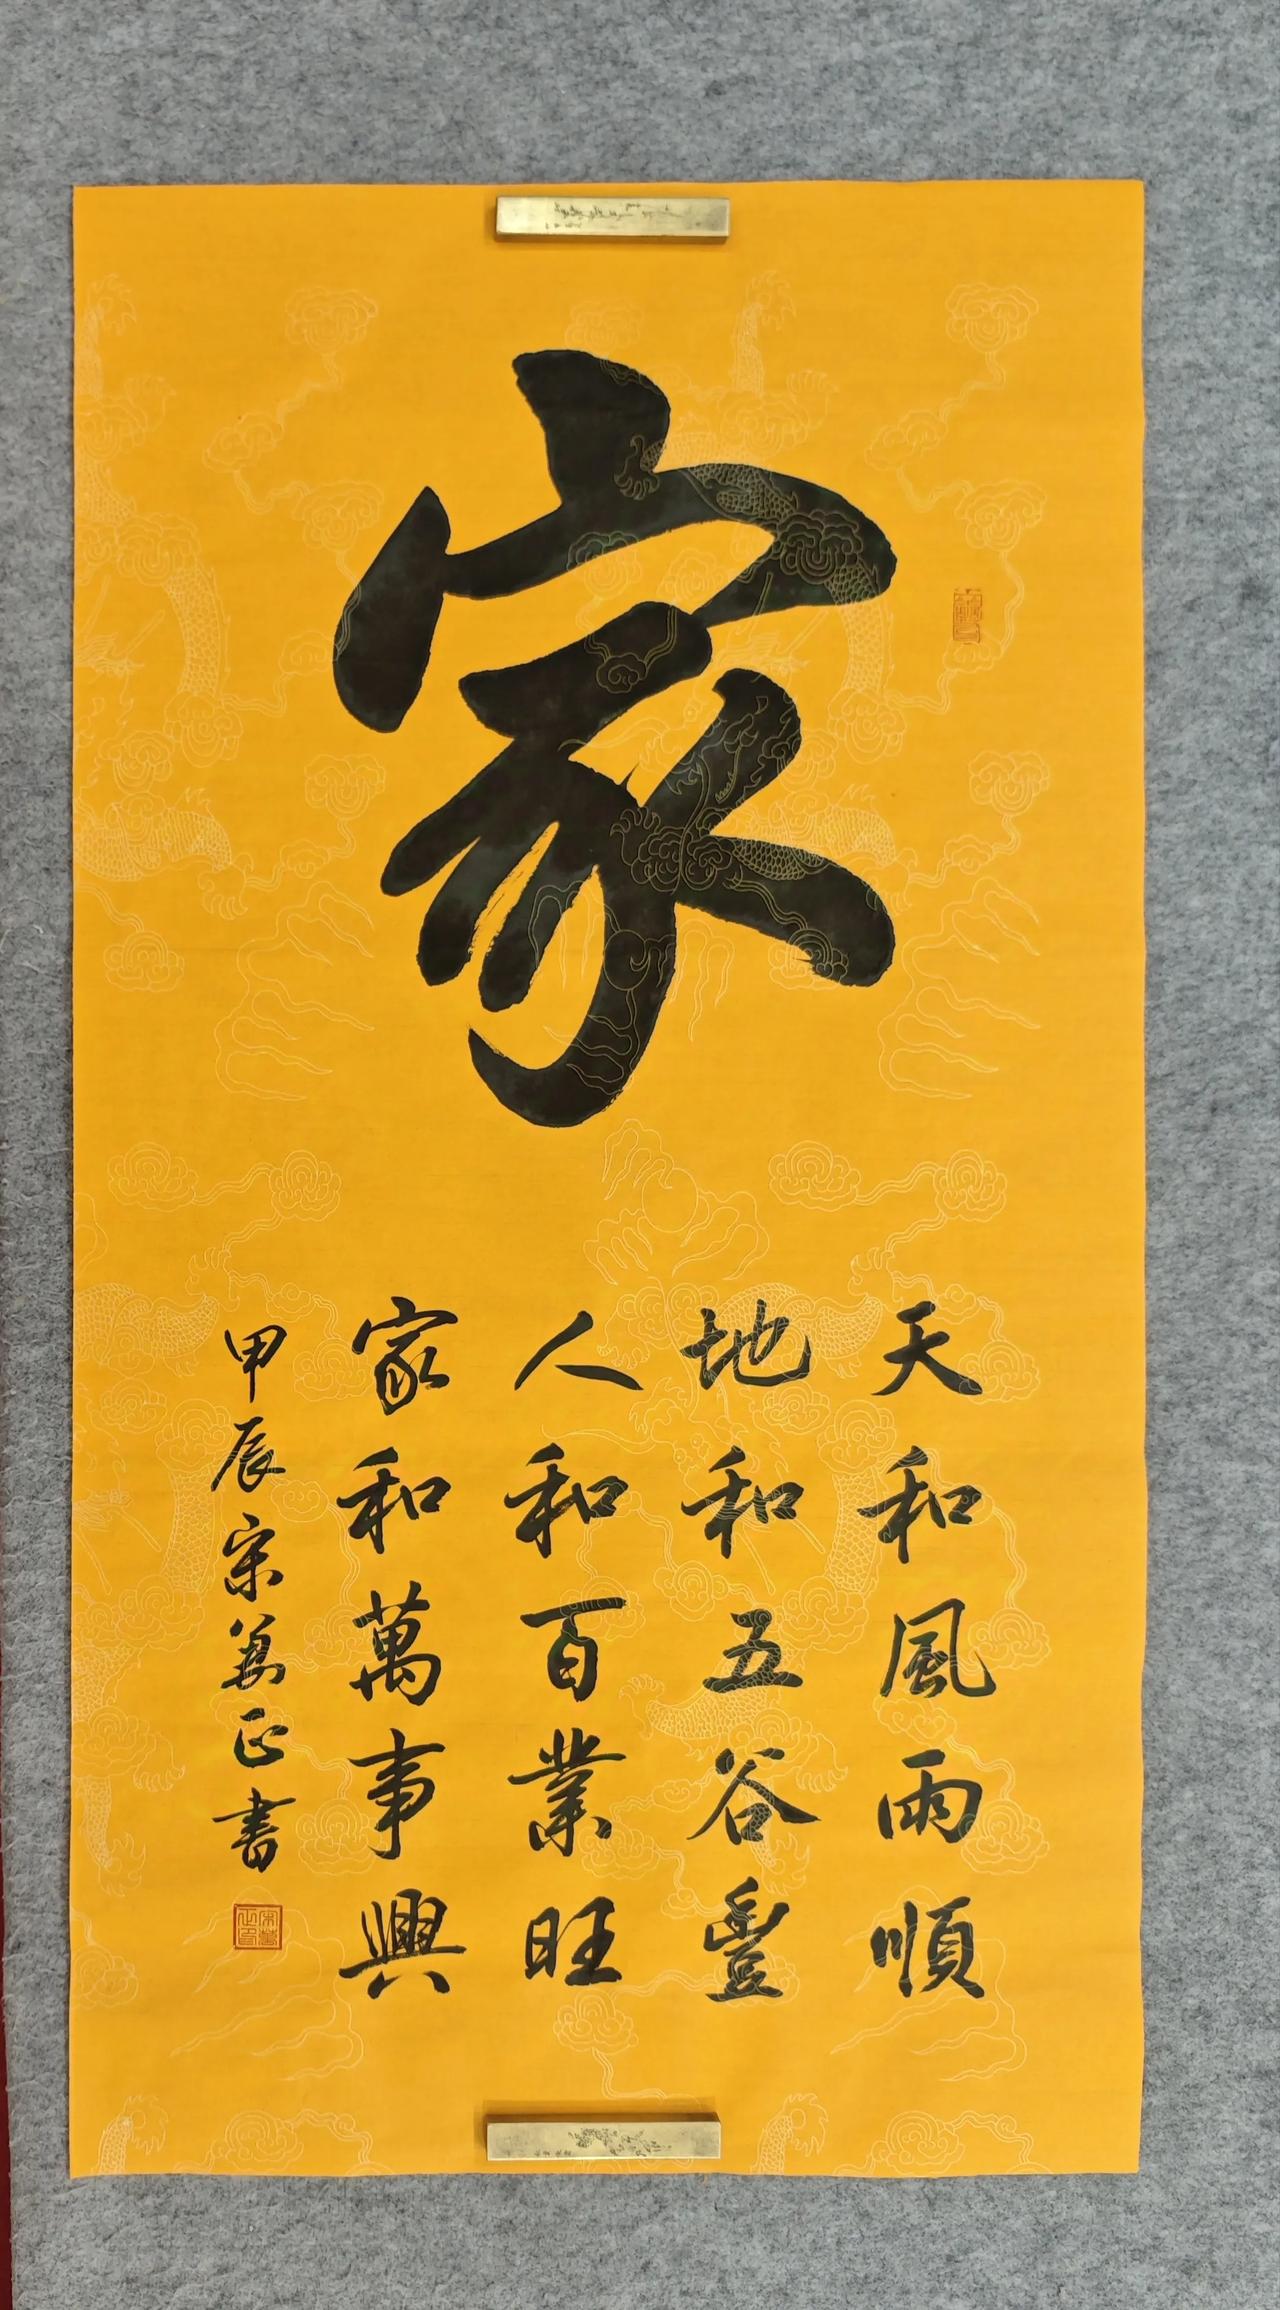 家
天和風雨順
地和五谷豐
人和百業旺
家和萬事興
甲辰宋萬正書